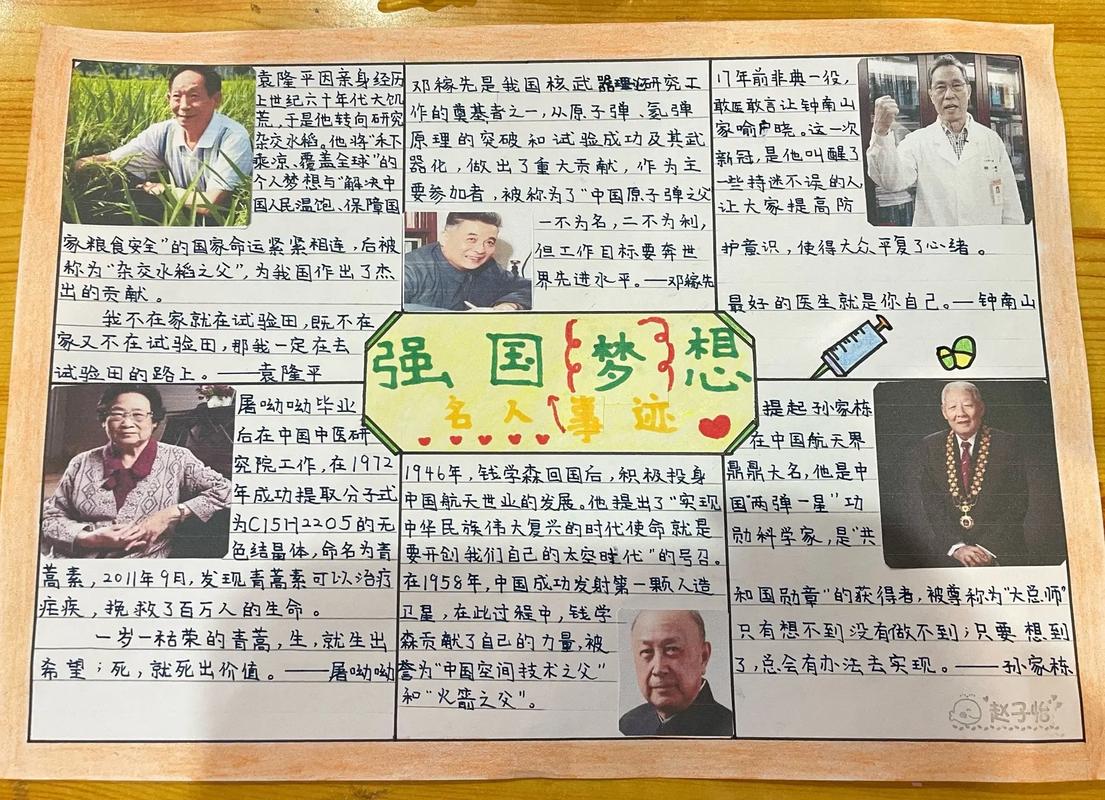 袁隆平因亲身经历
上世纪六十年代大饥
荒，于是他转向研究
杂交水稻。他将“禾下
乘凉、覆盖全球”的
个人梦想与“解决中
国人民温饱、保障国
家粮食安全”的国家命运紧紧相连，后被
称为“杂交水稻之父”，为我国作出了杰
出的贡献。
我不在家就在试验田，既不在
家又不在试验田，那我一定在去
试验田的路上。——袁隆平
邓稼先是我国核武器理论研究工
作的奠基者之一，从原子弹、氢弹
原理的突破和试验成功及其武
器化，做出了重大贡献，作为主
要参加者，被称为了“中国原子弹之父
一不为名，二不为利，
但工作目标要奔世
界先进水平。——邓稼先
17年前非典一役，
敢医敢言让钟南山
家喻户晓。这一次
新冠，是他叫醒了
一些持迷不误的人
让大家提高防
护意识，使得大众平复了心绪。
最好的医生就是你自己。——钟南山
强国{梦}想
名人事迹
屠呦呦毕业
后在中国中医研
究院工作，在1972
年成功提取分子式
为C15H22O5的无
色结晶体，命名为青
蒿素，2011年9月，发现青蒿素可以治疗
症疾，挽救了百万人的生命。
一岁一枯荣的青蒿，生，就生出
希望；死，就死出价值。——屠呦呦
1946年，钱学森回国后，积极投身
中国航天世业的发展。他提出了“实现
中华民族伟大复兴的时代使命就是
要开创我们自己的太空时代”的号召。
在1958年，中国成功发射第一颗人造
卫星，在此过程中，钱学
森贡献了自己的力量，被
誉为“中国空间技术之父”
和“火箭之父”。
提起孙家栋
在中国航天界
鼎鼎大名，他是中
国“两弹一星”功
勋科学家，是“共
和国勋章”的获得者，被尊称为“大总师”
只有想不到没有做不到；只要想到
了，总会有办法去实现。——孙家栋
赵子怡